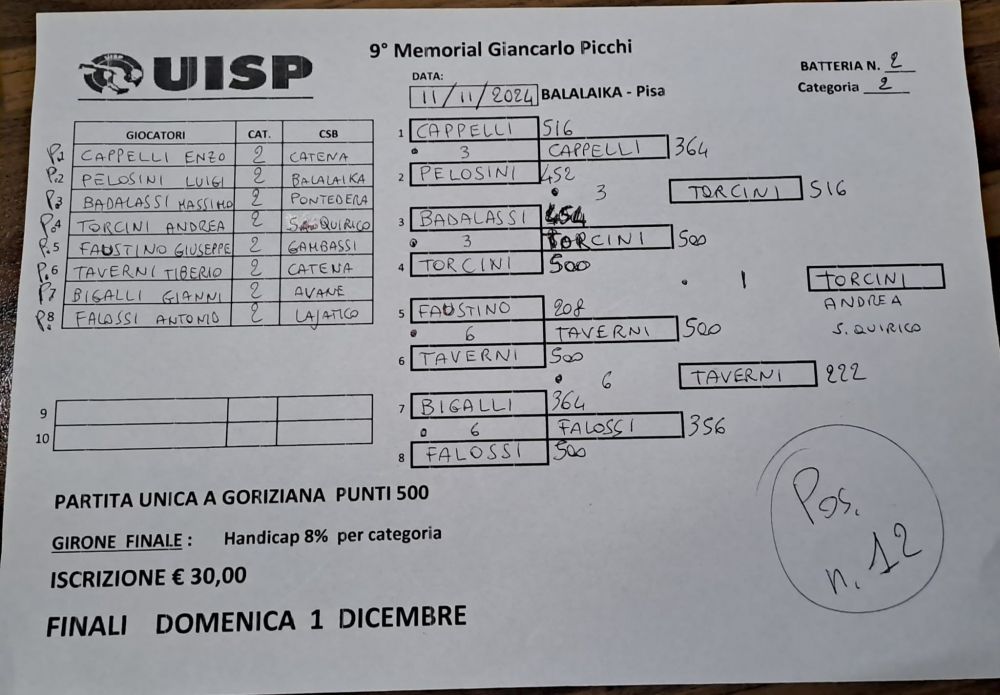 9° Memorial Giancarlo Picchi
UISP
DATA:
11/11/2024 BALALAIKA - Pisa
BATTERIA N. 2
Categoria 2
GIOCATORI CAT. CSB
P.1 CAPPELLI ENZO 2 CATENA
P.2 PELOSINI LUIGI 2 BALALAIKA
P.3 BADALASSI MASSIMO 2 PONTEDERA
P.4 TORCINI ANDREA 2 QUIRICO
P.5 FAUSTINO GIUSEPPE 2 GAMBASSI
P.6 TAVERNI TIBERIO 2 CATENA
P.7 BIGALLI GIANNI 2 AVANE
P.8 FALOSSI ANTONIO 2 LAJATICO
9
10
1 CAPPELLI 516
3 CAPPELLI 364
2 PELOSINI 452
3 TORCINI 516
3 BADALASSI 454
3 TORCINI 500
4 TORCINI 500
1 TORCINI
ANDREA
S. QUIRICO
5 FAUSTINO 208
6 TAVERNI 500
6 TAVERNI 500
6 TAVERNI 222
7 BIGALLI 364
6 FALOSSI 356
8 FALOSSI 500
PARTITA UNICA A GORIZIANA PUNTI 500
GIRONE FINALE : Handicap 8% per categoria
ISCRIZIONE € 30,00
FINALI DOMENICA 1 DICEMBRE
Pos.
n. 12